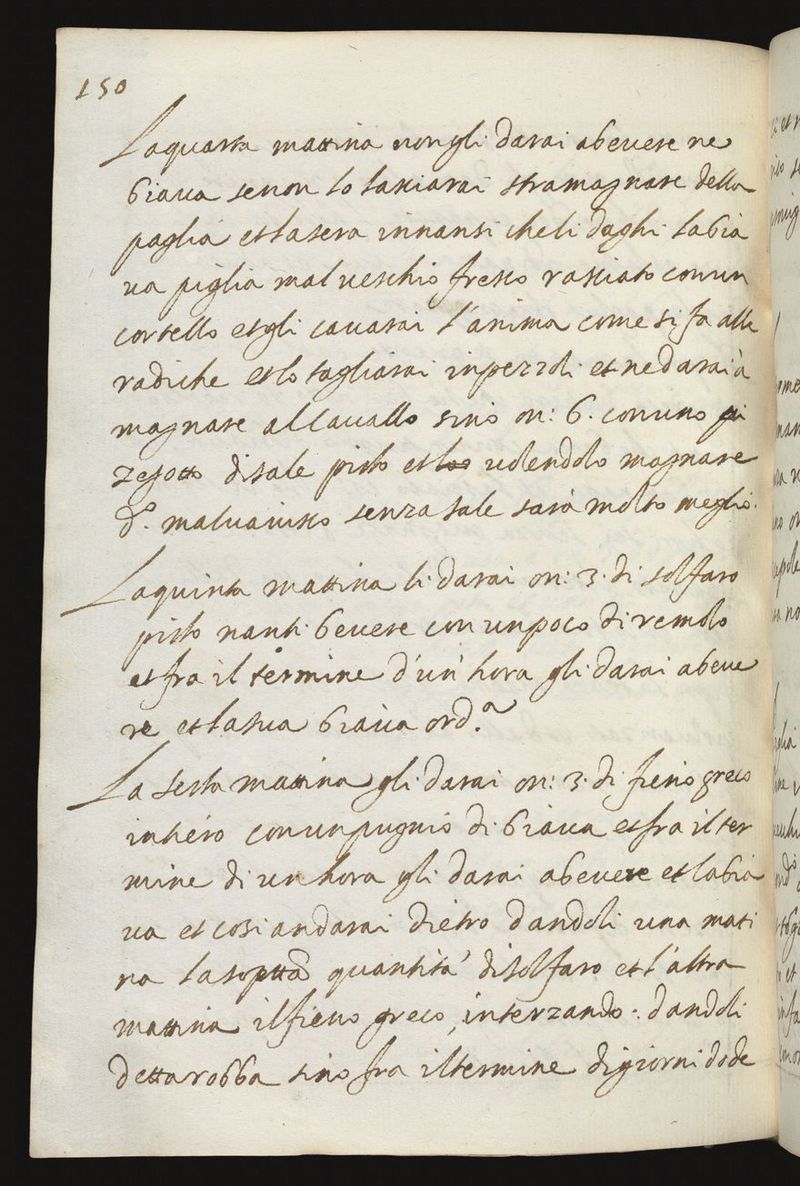 150
La quarta mattina non gli darai a bevere ne
biava se non lo lassiarai stramagnare della
paglia et la sera innansi che li daghi la bia
va piglia malveschio fresco rasciato con un
cortello et gli cavarai l'anima come si fa alle
radiche et lo tagliarai in pezzoli et ne darai à
magnare al Cavallo sino on: 6. con uno pi
zegotto di sale pisto et volendolo magnare
d.o malvavisco senza sale sarà molto meglio.
La quinta mattina li darai on: 3. di solfaro
pisto nanti bevere con un poco di remolo
et fra il termine d'un' hora gli darai a beve
re et la sua biava ord.a
La sesta mattina gli darai on: 3. di fieno greco
intiero con un pugnio di biava et fra il ter
mine di un hora gli darai a bevere et la bia
va et cosi andarai dietro dandoli una mati
na la sopttа quantità di solfaro et l'altra
mattina il fieno greco, interzando: dandoli
detta robba sino fra il termine di giorni dode